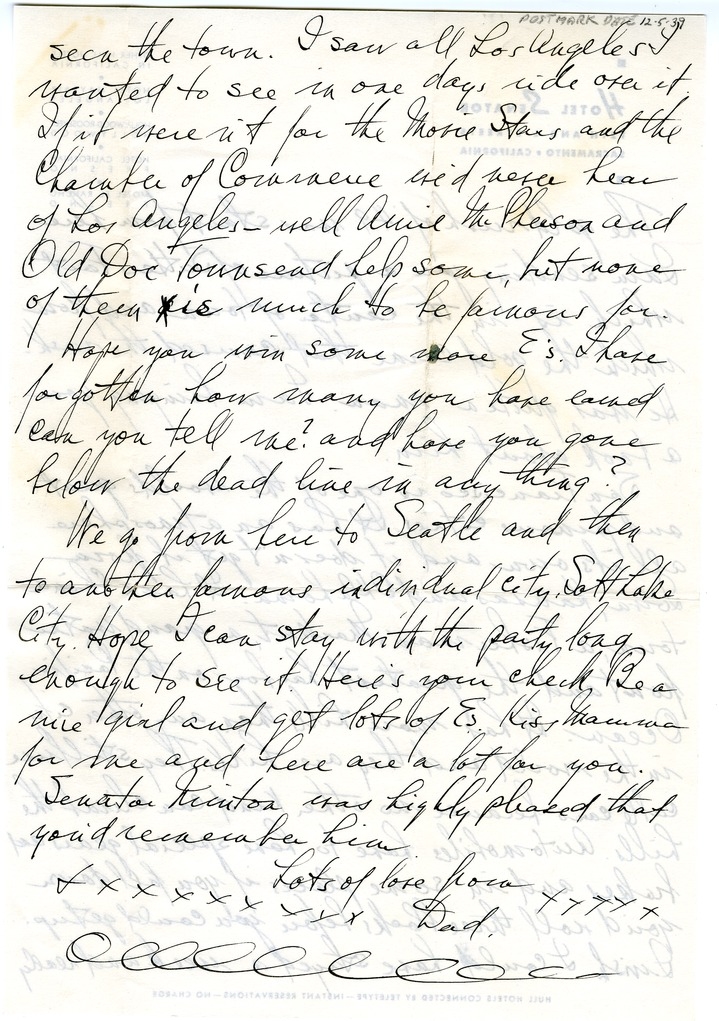 POSTMARK DATE 12-5-39
seen the town. I saw all Los Angeles I
wanted to see in one days ride over it.
If it weren't for the Movie Stars and the
Chamber of Commerce we'd never hear
of Los Angeles - well Amie McPherson and
Old Doc Townsend help some, but none
of them is much to be famous for.
Hope you win some more E's. I have
forgotten how many you have earned
can you tell me? and have you gone
below the dead line in any thing?
We go from here to Seatle and then
to another famous individual city, Salt Lake
City. Hope I can stay with the party long
enough to see it. Here's your check. Be a
nice girl and get lots of Es. Kiss Mamma
for me and here are a lot for you.
Senator Minton was highly pleased that
you'd remember him.
Lots of love from
x x x x x x x x x x x x x x x
Dad.